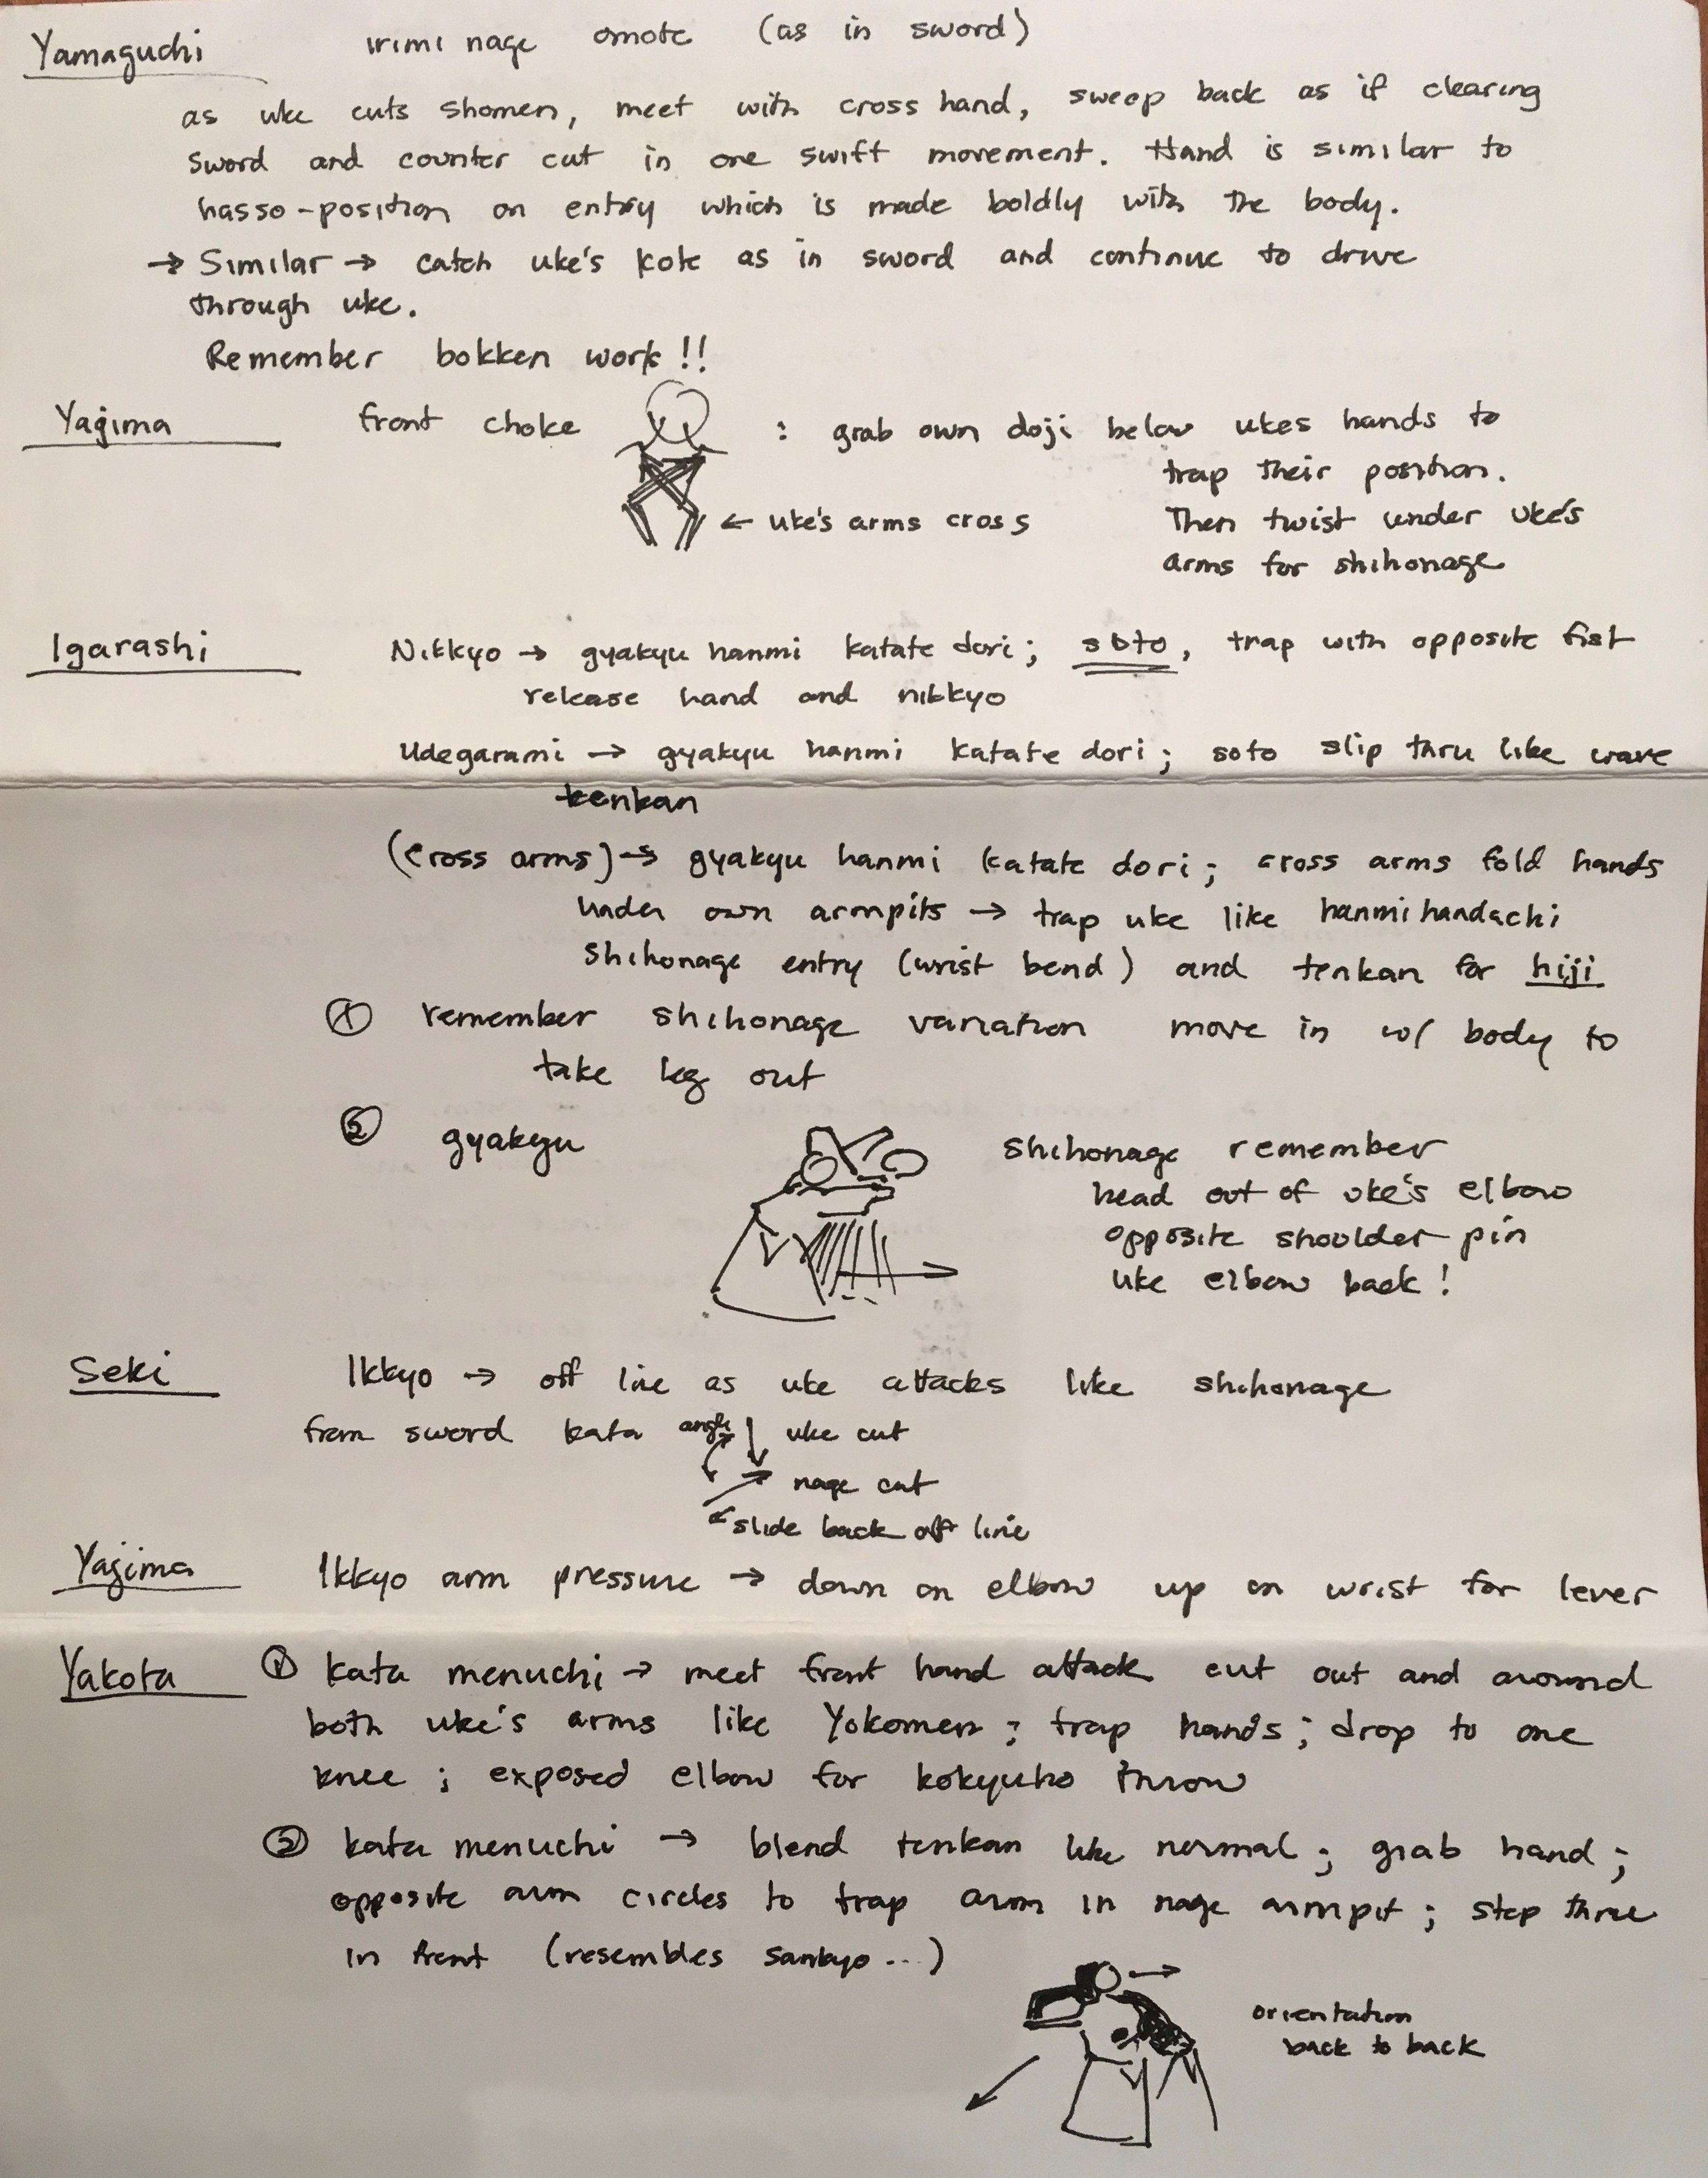 Yamaguchi irimi nage omote (as in sword)
as uke cuts shomen, meet with cross hand, sweep back as if clearing
sword and counter cut in one swift movement. Hand is similar to
hasso-position on entry which is made boldly with the body.
→ Similar → catch uke's kote as in sword and continue to drive
through uke.
Remember bokken work!!
Yajima front choke : grab own doji below ukes hands to
trap their position.
← uke's arms cross Then twist under uke's
arms for shihonage
Igarashi Nikkyo → gyakyu hanmi katate dori; soto, trap with opposite fist
release hand and nikkyo
Udegarami → gyakyu hanmi katate dori; soto slip thru like wave
tenkan
(cross arms) → gyakyu hanmi katate dori; cross arms fold hands
under own armpits → trap uke like hanmihandachi
shihonage entry (wrist bend) and tenkan for hiji
① remember shihonage variation move in w/ body to
take leg out
② gyakyu shihonage remember
head out of uke's elbow
opposite shoulder pin
uke elbow back!
Seki Ikkyo → off line as uke attacks like shihonage
from sword kata angle ↓ uke cut
nage cut
slide back off line
Yajima Ikkyo arm pressure → down on elbow up on wrist for lever
Yakota ① kata menuchi → meet front hand attack cut out and around
both uke's arms like Yokomen; trap hands; drop to one
knee; exposed elbow for kokyuho throw
② kata menuchi → blend tenkan like normal; grab hand;
opposite arm circles to trap arm in nage armpit; step three
in front (resembles sankyo...)
orientation
back to back